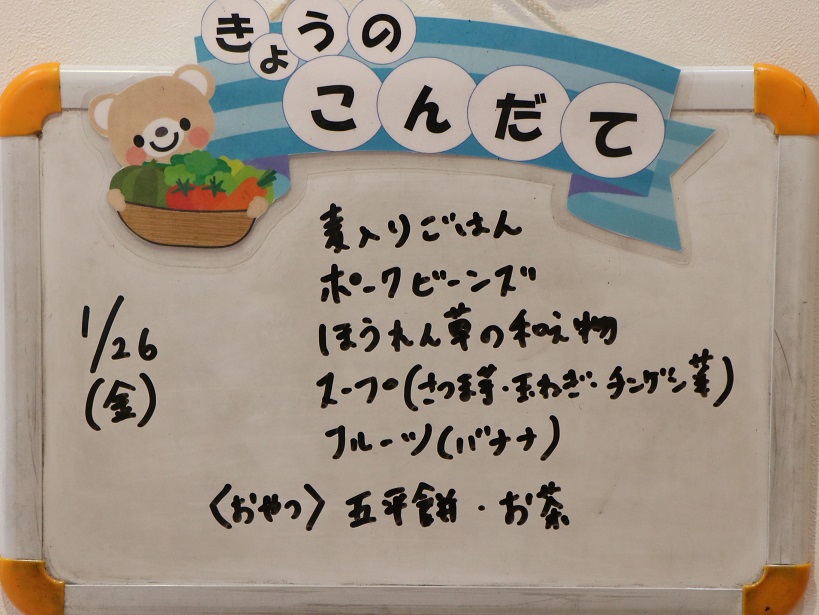 きょうの
こんだて
麦入りごはん
ポークビーンズ
1/26
ほうれん草の和え物
(金)
スープ(さつま芋・玉ねぎ・チンゲン菜)
フルーツ(バナナ)
〈おやつ〉 五平餅・お茶